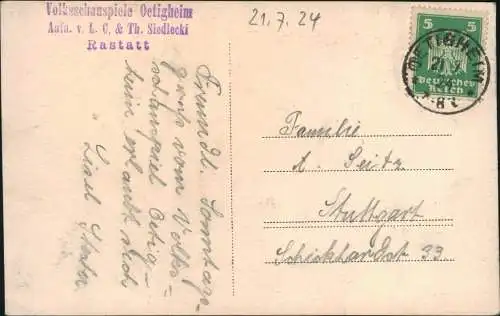 Volksschauspiele Oetigheim
Aufn. v. L. C. & Th. Siedlecki
Rastatt
21.7.24
5 5
Deutsches
Reich
OETIGHEIM
Freundl. Sonntags-
gruß vom Volks-
schauspiel Oetig-
heim erlaubt sich
Liesel
Familie
A. Seitz
Stuttgart
Schickhardtst 33